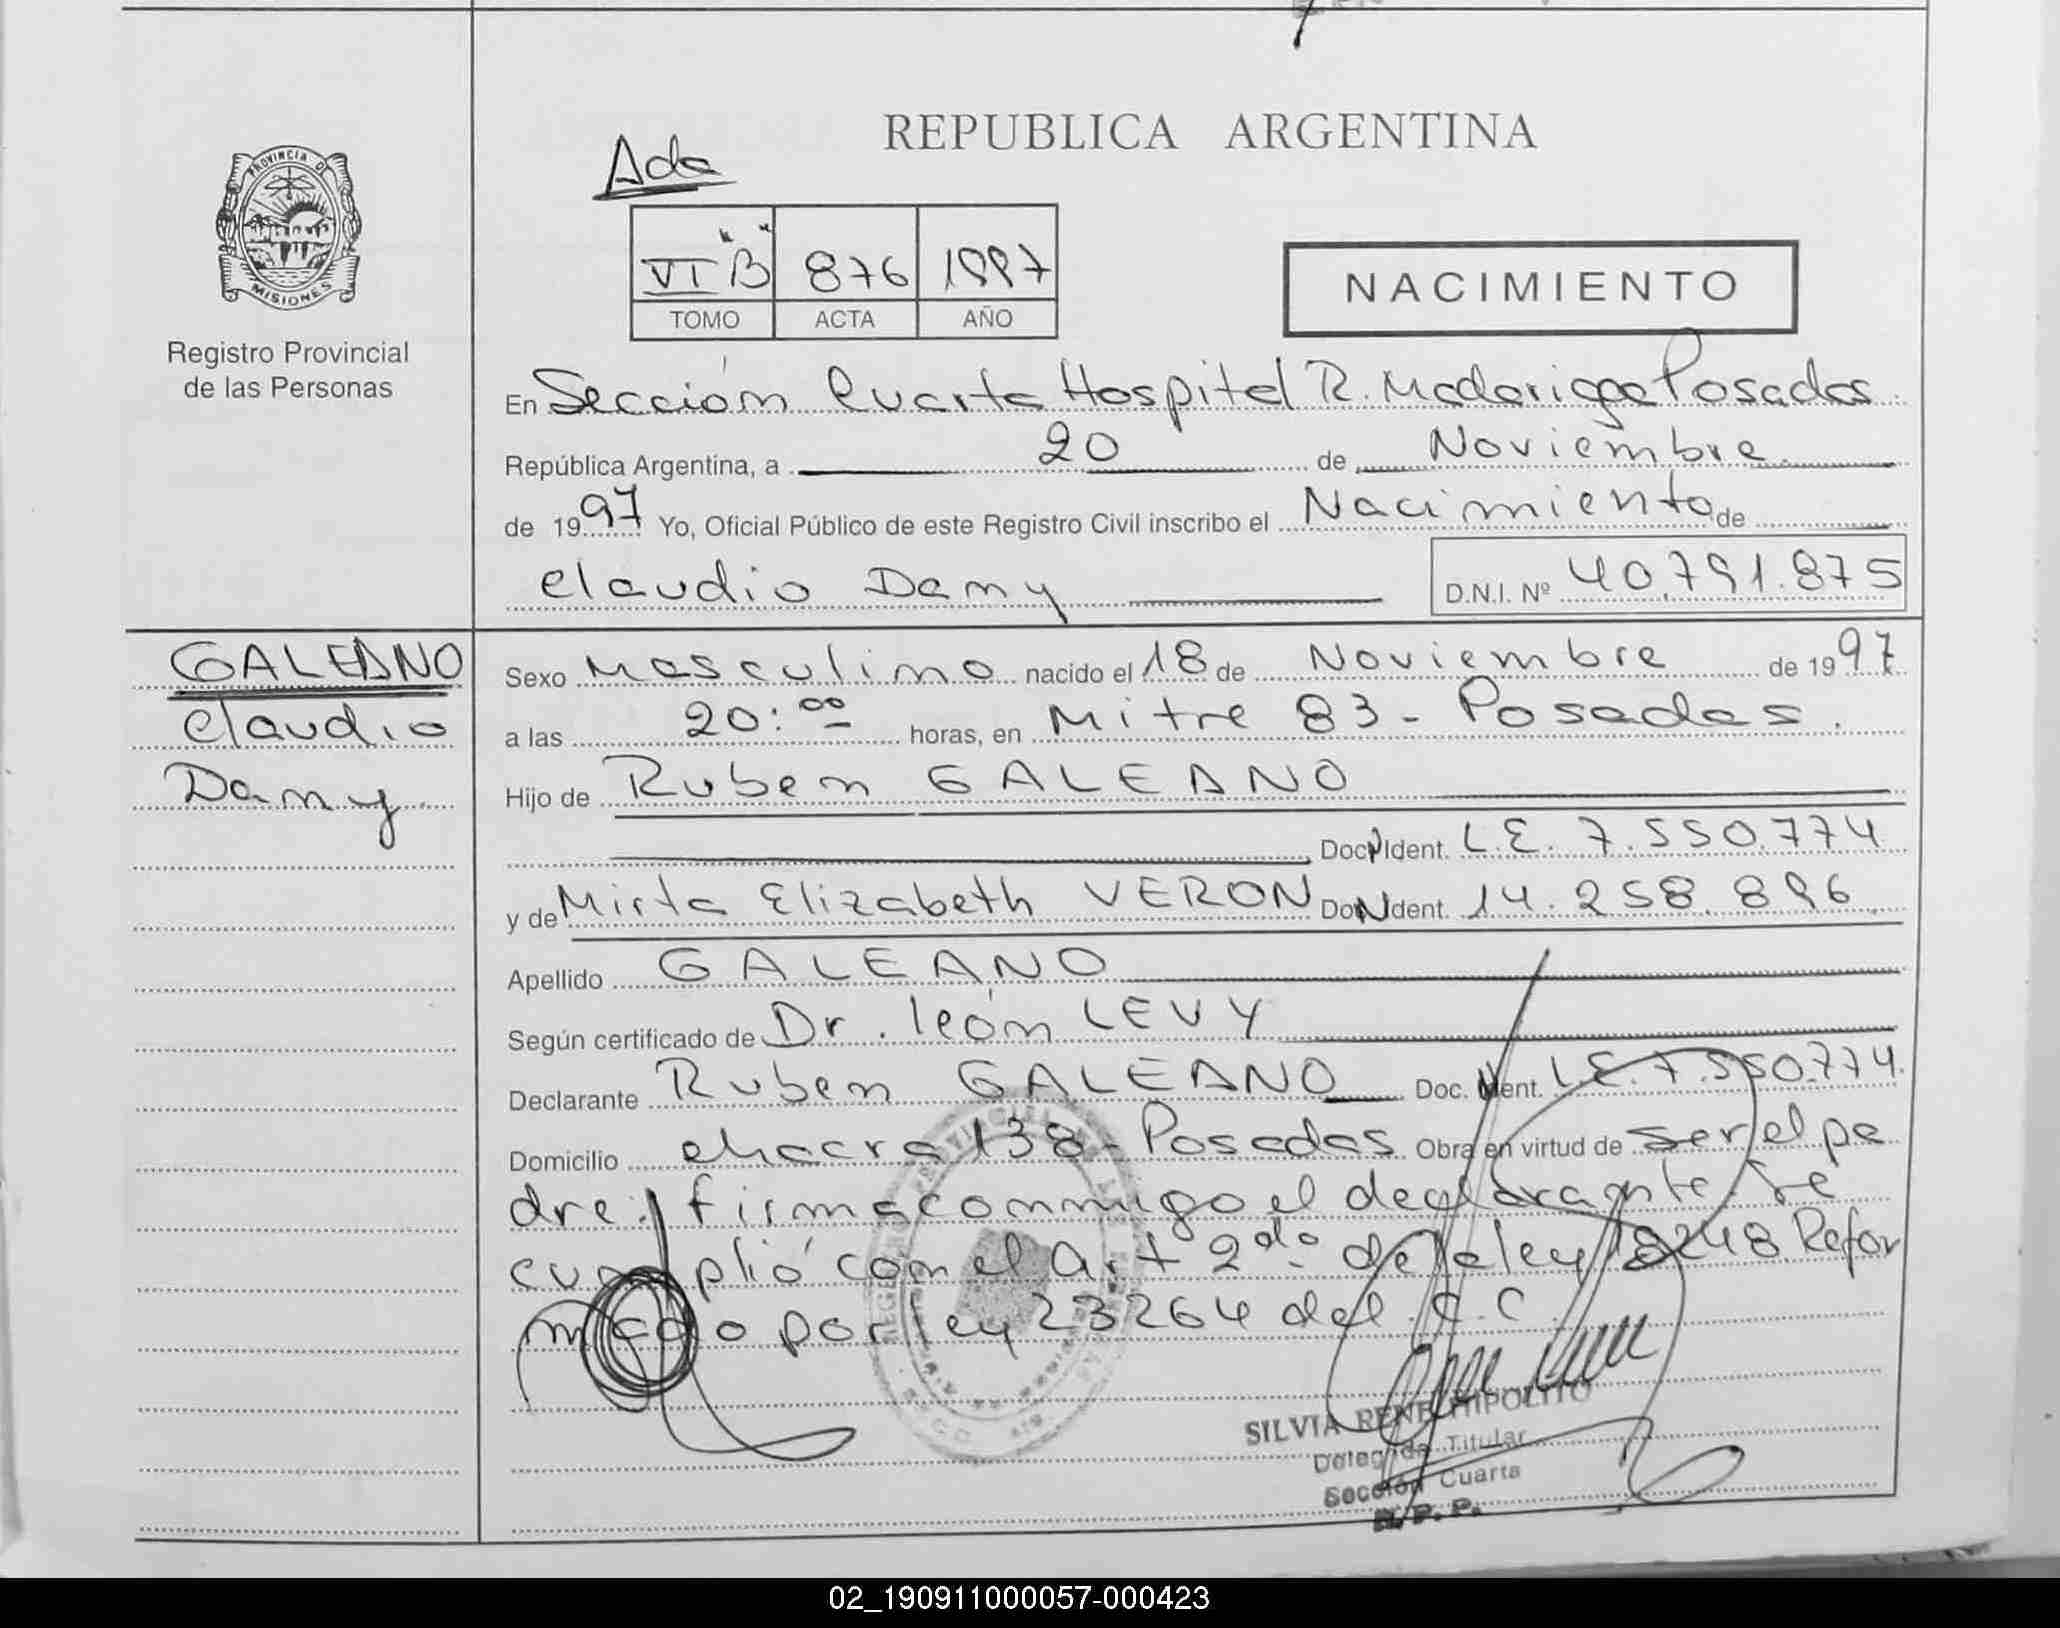 PROVINCIA DE
MISIONES
Registro Provincial
de las Personas
REPUBLICA ARGENTINA
Ada
VI "B" 876 1997
TOMO ACTA AÑO
NACIMIENTO
En Sección Cuarta Hospital R. Madariaga Posadas
República Argentina, a 20 de Noviembre
de 1997 Yo, Oficial Público de este Registro Civil inscribo el Nacimiento de
Claudio Dany D.N.I. Nº 40.791.875
GALEANO
Claudio
Dany
Sexo Masculino nacido el 18 de Noviembre de 1997
a las 20:00 horas, en Mitre 83 - Posadas.
Hijo de Ruben GALEANO
Doc. Ident. L.E. 7.550.774
y de Mirta Elizabeth VERON Doc. Ident. 14.258.896
Apellido GALEANO
Según certificado de Dr. León LEVY
Declarante Ruben GALEANO Doc. Ident. L.E. 7.550.774.
Domicilio chacra 138 - Posadas Obra en virtud de ser el pa
dre: firma conmigo el declarante. Se
cumplió con el Art 2do. de la ley 18248 Refor
mado por ley 23264 del C.C.
SILVIA RENE HIPOLITO
Delegada Titular
Sección Cuarta
R. P. P.
02_190911000057-000423